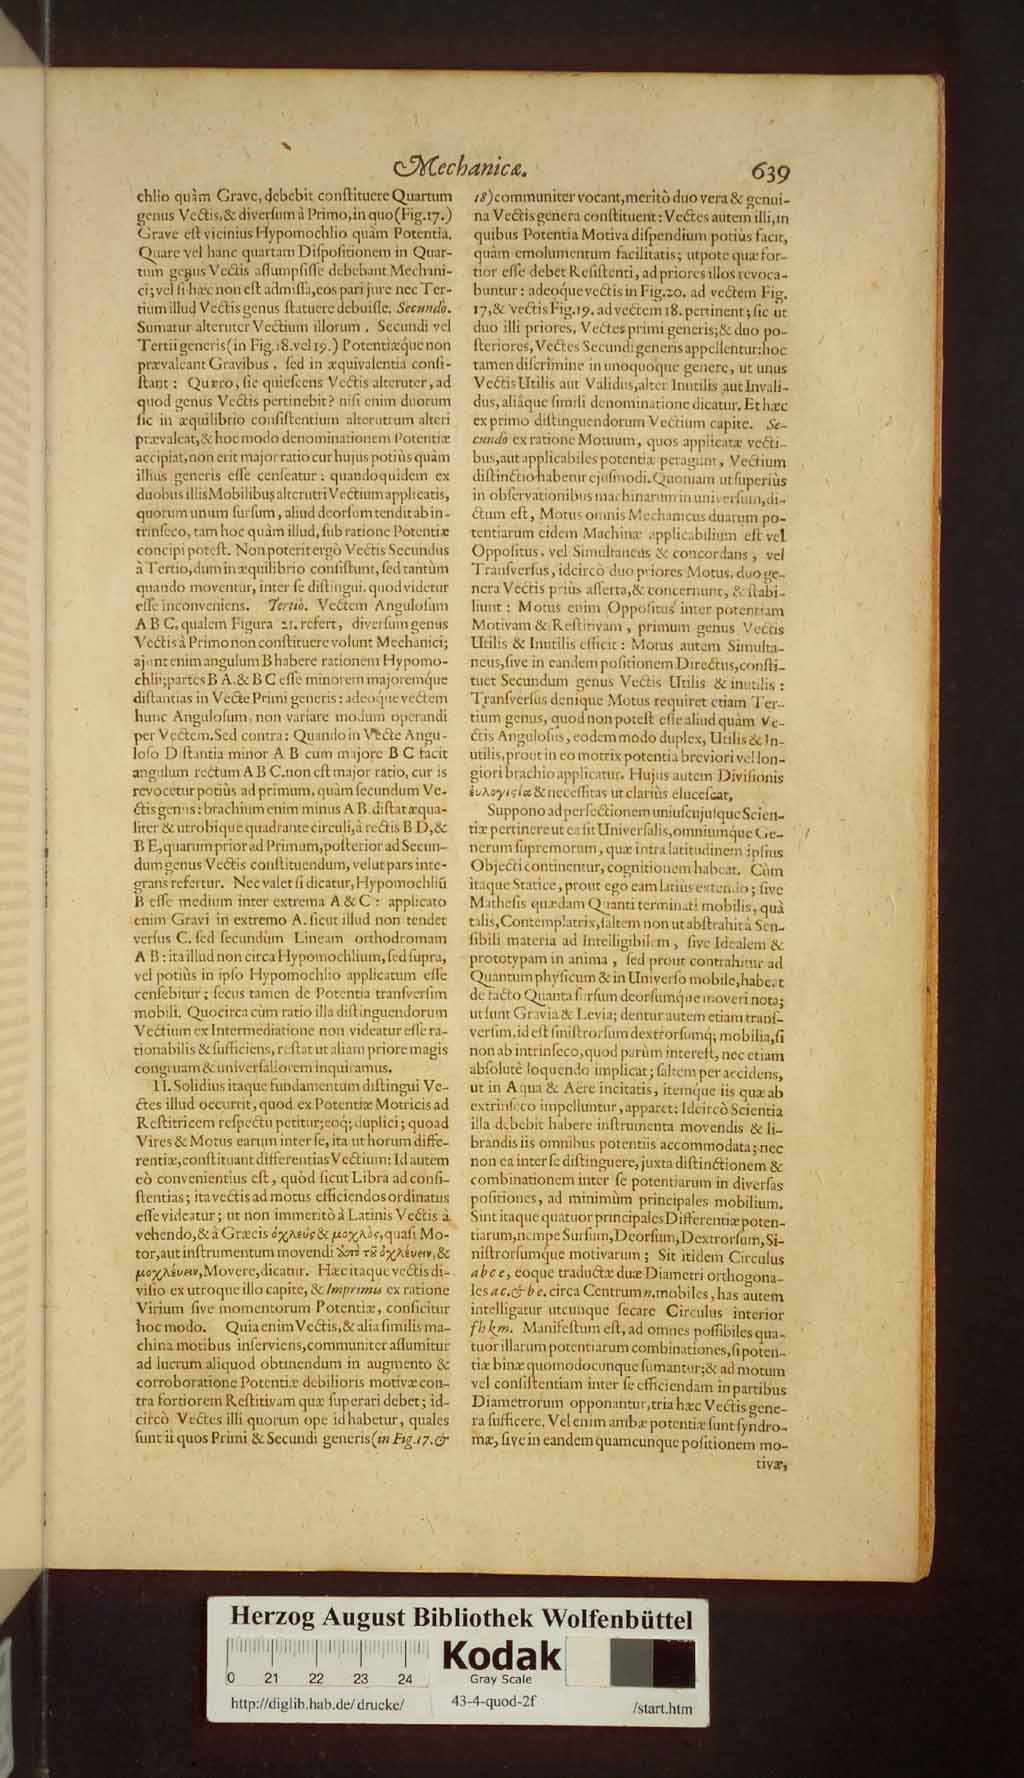 Mechanicæ.
639
chlio quàm Grave, debebit conſtituere Quartum
genus Vectis, & diverſum à Primo, in quo (Fig. 17.)
Grave eſt vicinius Hypomochlio quàm Potentia.
Quare vel hanc quartam Diſpoſitionem in Quar-
tum genus Vectis aſſumpſiſſe debebant Mechani-
ci; vel ſi hæc non eſt admiſſa, eos pari jure nec Ter-
tium illud Vectis genus ſtatuere debuiſſe. Secundò.
Sumatur alteruter Vectium illorum. Secundi vel
Tertii generis (in Fig. 18. vel 19.) Potentiæque non
prævaleant Gravibus, ſed in æquivalentia conſi-
ſtant: Quæro, ſic quieſcens Vectis alteruter, ad
quod genus Vectis pertinebit? niſi enim duorum
ſic in æquilibrio conſiſtentium alterutrum alteri
prævaleat, & hoc modo denominationem Potentiæ
accipiat, non erit major ratio cur hujus potiùs quàm
illius generis eſſe cenſeatur: quandoquidem ex
duobus illis Mobilibus alterutri Vectium applicatis,
quorum unum ſurſum, aliud deorſum tendit ab in-
trinſeco, tam hoc quàm illud, ſub ratione Potentiæ
concipi poteſt. Non poterit ergò Vectis Secundus
à Tertio, dum in æquilibrio conſiſtunt, ſed tantùm
quando moventur, inter ſe diſtingui, quod videtur
eſſe inconveniens. Tertiò. Vectem Anguloſum
A B C, qualem Figura 21. refert, diverſum genus
Vectis à Primo non conſtituere volunt Mechanici;
ajunt enim angulum B habere rationem Hypomo-
chlii; partes B A. & B C eſſe minorem majoremque
diſtantias in Vecte Primi generis: adeoque vectem
hunc Anguloſum, non variare modum operandi
per Vectem. Sed contra: Quando in Vecte Angu-
loſo Diſtantia minor A B cum majore B C facit
angulum rectum A B C. non eſt major ratio, cur is
revocetur potiùs ad primum, quàm ſecundum Ve-
ctis genus: brachium enim minus A B. diſtat æqua-
liter & utrobique quadrante circuli, à rectis B D, &
B E, quarum prior ad Primum, poſterior ad Secun-
dum genus Vectis conſtituendum, velut pars inte-
grans refertur. Nec valet ſi dicatur, Hypomochliũ
B eſſe medium inter extrema A & C: applicato
enim Gravi in extremo A. ſicut illud non tendet
verſus C. ſed ſecundùm Lineam orthodromam
A B: ita illud non circa Hypomochlium, ſed ſupra,
vel potiùs in ipſo Hypomochlio applicatum eſſe
cenſebitur; ſecus tamen de Potentia tranſverſim
mobili. Quocirca cùm ratio illa diſtinguendorum
Vectium ex Intermediatione non videatur eſſe ra-
tionabilis & ſufficiens, reſtat ut aliam priore magis
congruam & univerſaliorem inquiramus.
II. Solidius itaque fundamentum diſtingui Ve-
ctes illud occurrit, quod ex Potentiæ Motricis ad
Reſtitricem reſpectu petitur; eoq; duplici; quoad
Vires & Motus earum inter ſe, ita ut horum diffe-
rentiæ, conſtituant differentias Vectium: Id autem
eò convenientius eſt, quòd ſicut Libra ad conſi-
ſtentias; ita vectis ad motus efficiendos ordinatus
eſſe videatur; ut non immeritò à Latinis Vectis à
vehendo, & à Græcis ὀχλεύς & μοχλὸς, quaſi Mo-
tor, aut inſtrumentum movendi ἀπὸ τȣ̃ ὀχλέυειν, &
μοχλέυειν, Movere, dicatur. Hæc itaque vectis di-
viſio ex utroque illo capite, & Imprimis ex ratione
Virium ſive momentorum Potentiæ, conficitur
hoc modo. Quia enim Vectis, & alia ſimilis ma-
china motibus inſerviens, communiter aſſumitur
ad lucrum aliquod obtinendum in augmento &
corroboratione Potentiæ debilioris motivæ con-
tra fortiorem Reſtitivam quæ ſuperari debet; id-
circò Vectes illi quorum ope id habetur, quales
ſunt ii quos Primi & Secundi generis (in Fig. 17. &
18) communiter vocant, meritò duo vera & genui-
na Vectis genera conſtituent: Vectes autem illi, in
quibus Potentia Motiva diſpendium potiùs facit,
quàm emolumentum facilitatis; utpote quæ for-
tior eſſe debet Reſiſtenti, ad priores illos revoca-
buntur: adeoque vectis in Fig. 20. ad vectem Fig.
17, & vectis Fig. 19. ad vectem 18. pertinent; ſic ut
duo illi priores, Vectes primi generis; & duo po-
ſteriores, Vectes Secundi generis appellentur: hoc
tamen diſcrimine in unoquoque genere, ut unus
Vectis Utilis aut Validus, alter Inutilis aut Invali-
dus, aliâque ſimili denominatione dicatur. Et hæc
ex primo diſtinguendorum Vectium capite. Se-
cundò ex ratione Motuum, quos applicatæ vecti-
bus, aut applicabiles potentiæ peragunt, Vectium
diſtinctio habetur ejuſmodi. Quoniam ut ſuperiùs
in obſervationibus machinarum in univerſum, di-
ctum eſt, Motus omnis Mechanicus duarum po-
tentiarum eidem Machinæ applicabilium eſt vel
Oppoſitus, vel Simultaneus & concordans, vel
Tranſverſus, idcircò duo priores Motus, duo ge-
nera Vectis priùs aſſerta, & concernunt, & ſtabi-
liunt: Motus enim Oppoſitus inter potentiam
Motivam & Reſtitivam, primum genus Vectis
Utilis & Inutilis efficit: Motus autem Simulta-
neus, ſive in eandem poſitionem Directus, conſti-
tuet Secundum genus Vectis Utilis & inutilis:
Tranſverſus denique Motus requiret etiam Ter-
tium genus, quod non poteſt eſſe aliud quàm Ve-
ctis Anguloſus, eodem modo duplex, Utilis & In-
utilis, prout in eo motrix potentia breviori vel lon-
giori brachio applicatur. Hujus autem Diviſionis
ἐυλογιςία & neceſſitas ut clariùs eluceſcat,
Suppono ad perfectionem uniuſcujuſque Scien-
tiæ pertinere ut ea ſit Univerſalis, omniumque Ge-
nerum ſupremorum, quæ intra latitudinem ipſius
Objecti continentur, cognitionem habeat. Cùm
itaque Statice, prout ego eam latiùs extendo; ſive
Matheſis quædam Quanti terminati mobilis, quà
talis, Contemplatrix, ſaltem non ut abſtrahit à Sen-
ſibili materia ad Intelligibilem, ſive Idealem &
prototypam in anima, ſed prout contrahitur ad
Quantum phyſicum & in Univerſo mobile, habeat
de facto Quanta ſurſum deorſumque moveri nota;
ut ſunt Gravia & Levia; dentur autem etiam tranſ-
verſim, id eſt ſiniſtrorſum dextrorſumq; mobilia, ſi
non ab intrinſeco, quod parùm intereſt, nec etiam
abſolutè loquendo implicat; ſaltem per accidens,
ut in Aqua & Aere incitatis, itemque iis quæ ab
extrinſeco impelluntur, apparet: Idcircò Scientia
illa debebit habere inſtrumenta movendis & li-
brandis iis omnibus potentiis accommodata; nec
non ea inter ſe diſtinguere, juxta diſtinctionem &
combinationem inter ſe potentiarum in diverſas
poſitiones, ad minimùm principales mobilium.
Sint itaque quatuor principales Differentiæ poten-
tiarum, nempe Surſum, Deorſum, Dextrorſum, Si-
niſtrorſumque motivarum; Sit itidem Circulus
abce, eoque traductæ duæ Diametri orthogona-
les ac. & be. circa Centrum n. mobiles, has autem
intelligatur utcunque ſecare Circulus interior
fhkm. Manifeſtum eſt, ad omnes poſſibiles qua-
tuor illarum potentiarum combinationes, ſi poten-
tiæ binæ quomodocunque ſumantur; & ad motum
vel conſiſtentiam inter ſe efficiendam in partibus
Diametrorum opponantur, tria hæc Vectis gene-
ra ſufficere. Vel enim ambæ potentiæ ſunt ſyndro-
mæ, ſive in eandem quamcunque poſitionem mo-
tivæ,
Herzog August Bibliothek Wolfenbüttel
0 21 22 23 24
Kodak
Gray Scale
http://diglib.hab.de/drucke/
43-4-quod-2f
/start.htm